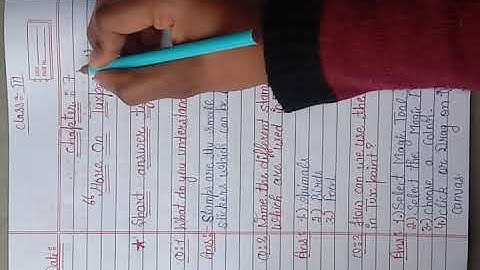 Class:- III
Chapter : 7
"More On Tuxp
* Short answer
Q:1 What do you understand
Ans:- Stamps are the small
stickers which can be
Q:2 Name the different stam
which are used
Ans: 1) Animals
2) Birds
3) Food
Q:3 How can we use the
in Tux paint?
Ans: 1) Select Magic Tool
2) Select the Magic
3) Choose a Color.
4) Click or Drag on
canvas.